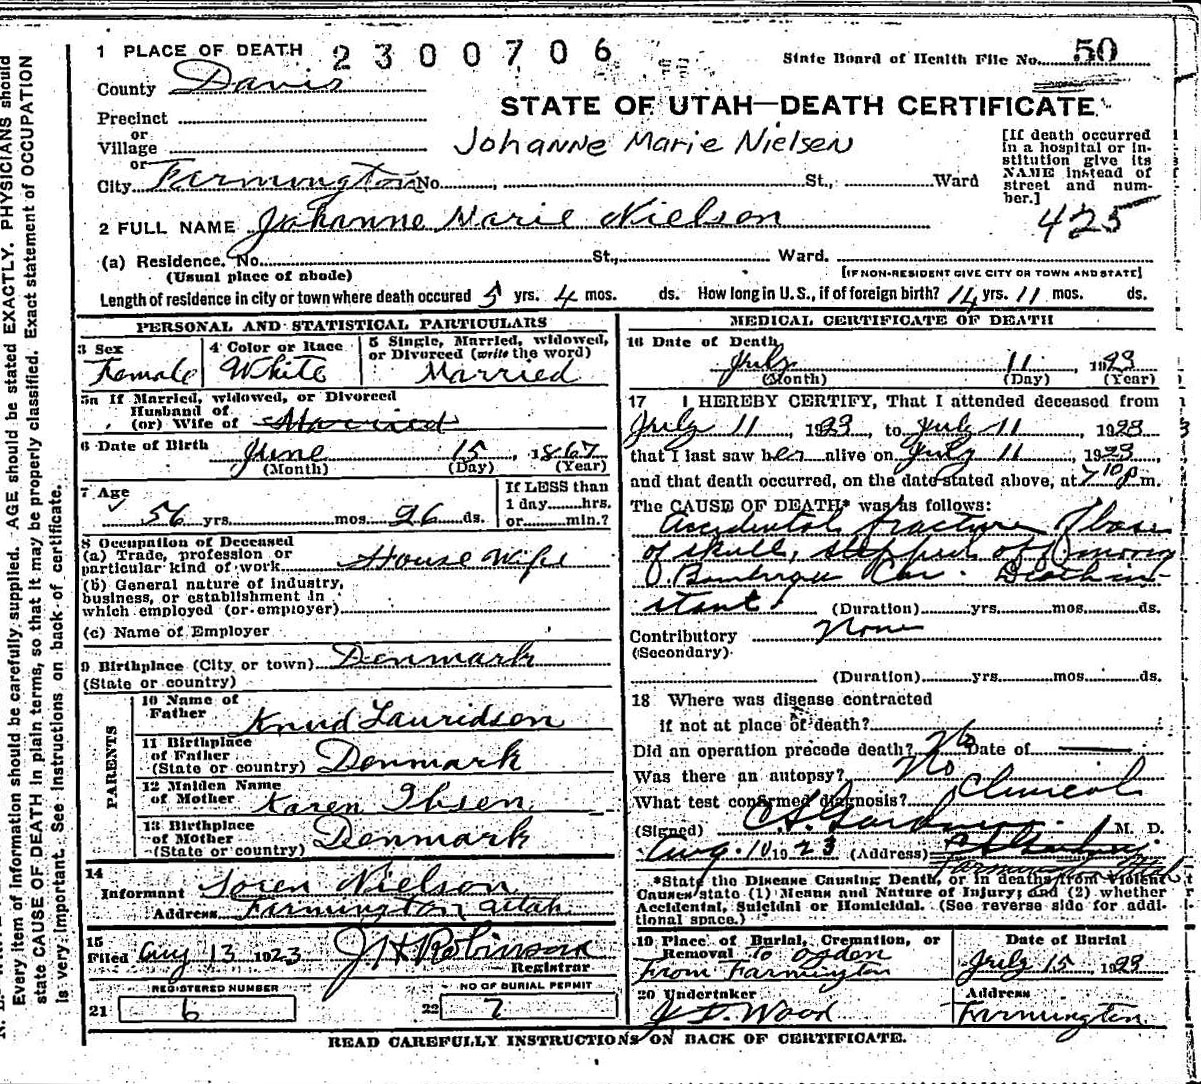 1 PLACE OF DEATH 2300706 State Board of Health File No. 50
County Davis
STATE OF UTAH—DEATH CERTIFICATE
Precinct
or
Village
or
Johanne Marie Nielsen
[If death occurred in a hospital or institution give its NAME instead of street and number.]
City Farmington No. St., Ward
425
2 FULL NAME Johanne Marie Nielson
(a) Residence. No. St., Ward.
(Usual place of abode) [IF NON-RESIDENT GIVE CITY OR TOWN AND STATE]
Length of residence in city or town where death occured 5 yrs. 4 mos. ds. How long in U.S., if of foreign birth? 14 yrs. 11 mos. ds.
PERSONAL AND STATISTICAL PARTICULARS
3 Sex
Female
4 Color or Race
White
5 Single, Married, widowed,
or Divorced (write the word)
Married
5a If Married, widowed, or Divorced
Husband of
(or) Wife of Married
6 Date of Birth June 15, 1867
(Month) (Day) (Year)
7 Age
56 yrs. mos. 26 ds.
If LESS than
1 day hrs.
or min.?
8 Occupation of Deceased
(a) Trade, profession or
particular kind of work House Wife
(b) General nature of industry,
business, or establishment in
which employed (or employer)
(c) Name of Employer
9 Birthplace (City or town) Denmark
(State or country)
PARENTS
10 Name of
Father Knud Lauridsen
11 Birthplace
of Father
(State or country) Denmark
12 Maiden Name
of Mother Karen Ibsen
13 Birthplace
of Mother
(State or country) Denmark
14
Informant Soren Nielson
Address Farmington Utah
15
Filed Aug 13 1923 J H Robinson
Registrar
REGISTERED NUMBER
21 6
NO OF BURIAL PERMIT
22 7
MEDICAL CERTIFICATE OF DEATH
16 Date of Death
July 11, 1923
(Month) (Day) (Year)
17 I HEREBY CERTIFY, That I attended deceased from
July 11, 1923, to July 11, 1923
that I last saw her alive on July 11, 1923,
and that death occurred, on the date stated above, at 7 10 P m.
The CAUSE OF DEATH* was as follows:
Accidental fracture of base
of skull, stepped off moving
Bamberger Car. Death in-
stant (Duration) yrs. mos. ds.
Contributory None
(Secondary)
(Duration) yrs. mos. ds.
18 Where was disease contracted
if not at place of death?
Did an operation precede death? No Date of
Was there an autopsy? No
What test confirmed diagnosis? Clinical
(Signed) M. D.
Aug. 10 1923 (Address) Farmington Utah
*State the Disease Causing Death, or in deaths from Violent
Causes state (1) Means and Nature of Injury; and (2) whether
Accidental, Suicidal or Homicidal. (See reverse side for addi-
tional space.)
19 Place of Burial, Cremation, or
Removal to Ogden
From Farmington
Date of Burial
July 15, 1923
20 Undertaker
J D. Wood
Address
Farmington
READ CAREFULLY INSTRUCTIONS ON BACK OF CERTIFICATE.
Every item of information should be carefully supplied. AGE should be stated EXACTLY. PHYSICIANS should
state CAUSE OF DEATH in plain terms, so that it may be properly classified. Exact statement of OCCUPATION
is very important. See instructions on back of certificate.